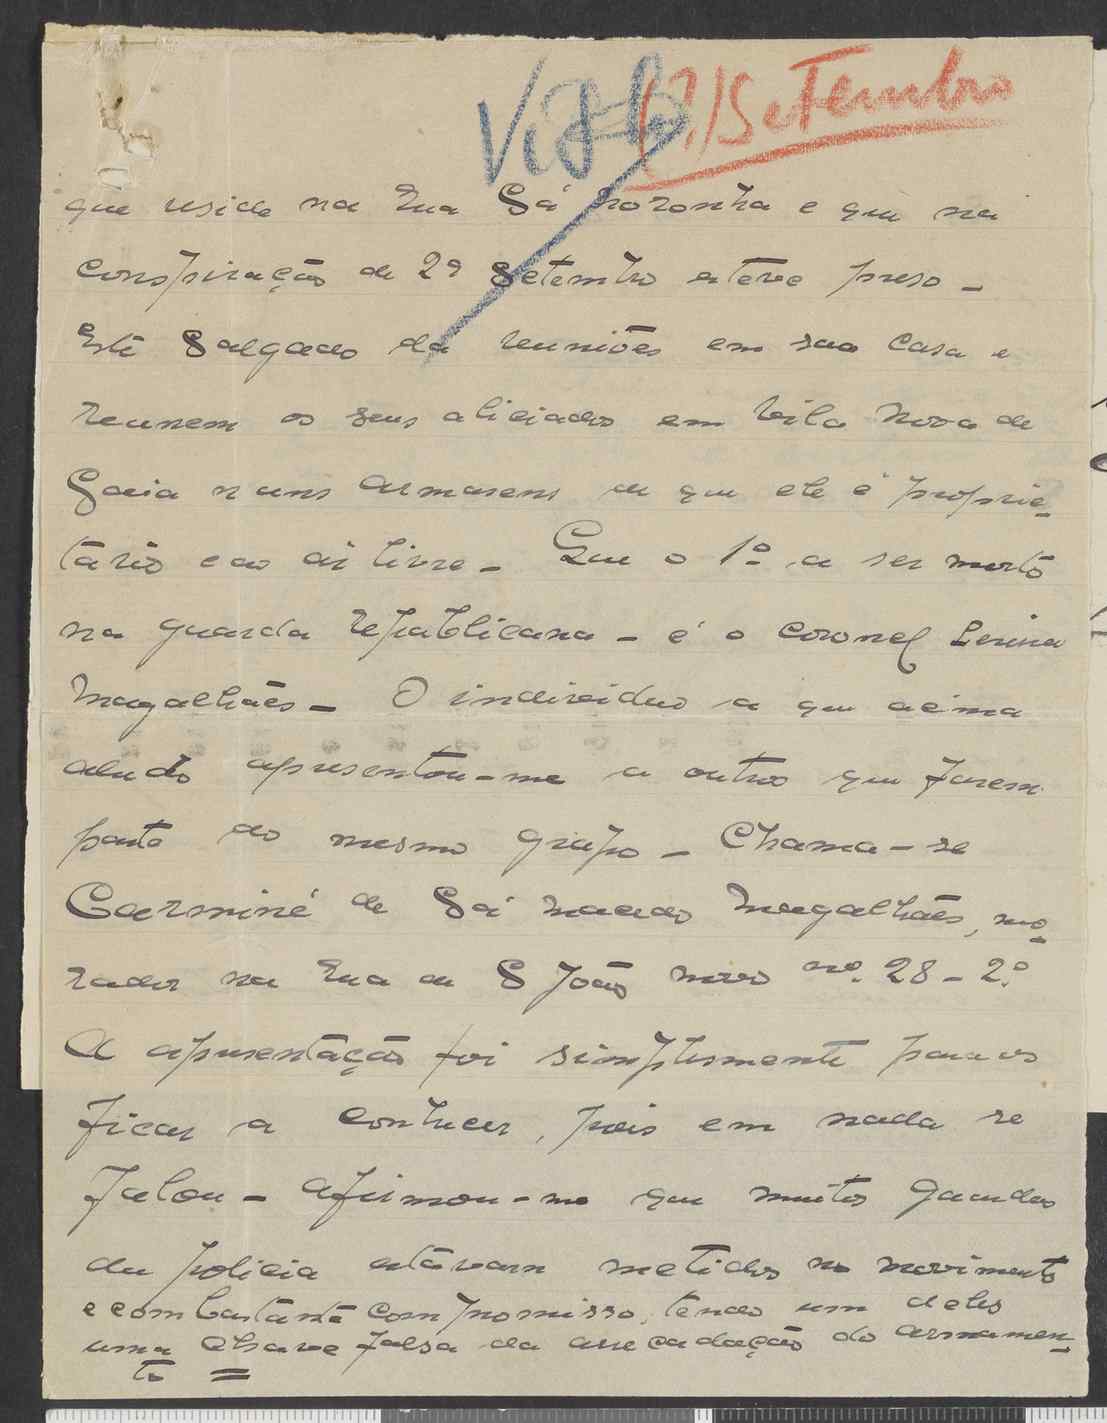 (?) Setembro
que reside na Rua Sá Noronha e que na
conspiração de 29 Setembro esteve preso -
Este Salgado da reuniões em sua casa e
reunem os seus aliciados em Vila Nova de
Gaia n'uns armasens de que ele é proprie-
tário e ao ar livre - Que o 1º a ser morto
na guarda republicana - é o coronel
Magalhães - O individuo a que acima
aludo apresentou-me a outro que fazem
parte do mesmo grupo - Chama-se
de Sá Macedo Magalhães, mo-
rador na Rua de S João novo nº. 28 - 2.º
A apresentação foi simplesmente para os
ficar a conhecer, pois em nada se
falou - Afirmou-me que muitos guardas
da policia estávam metidos no movimento
e com bastante compromisso, tendo um deles
uma chave falsa da arrecadação do armamen-
to =